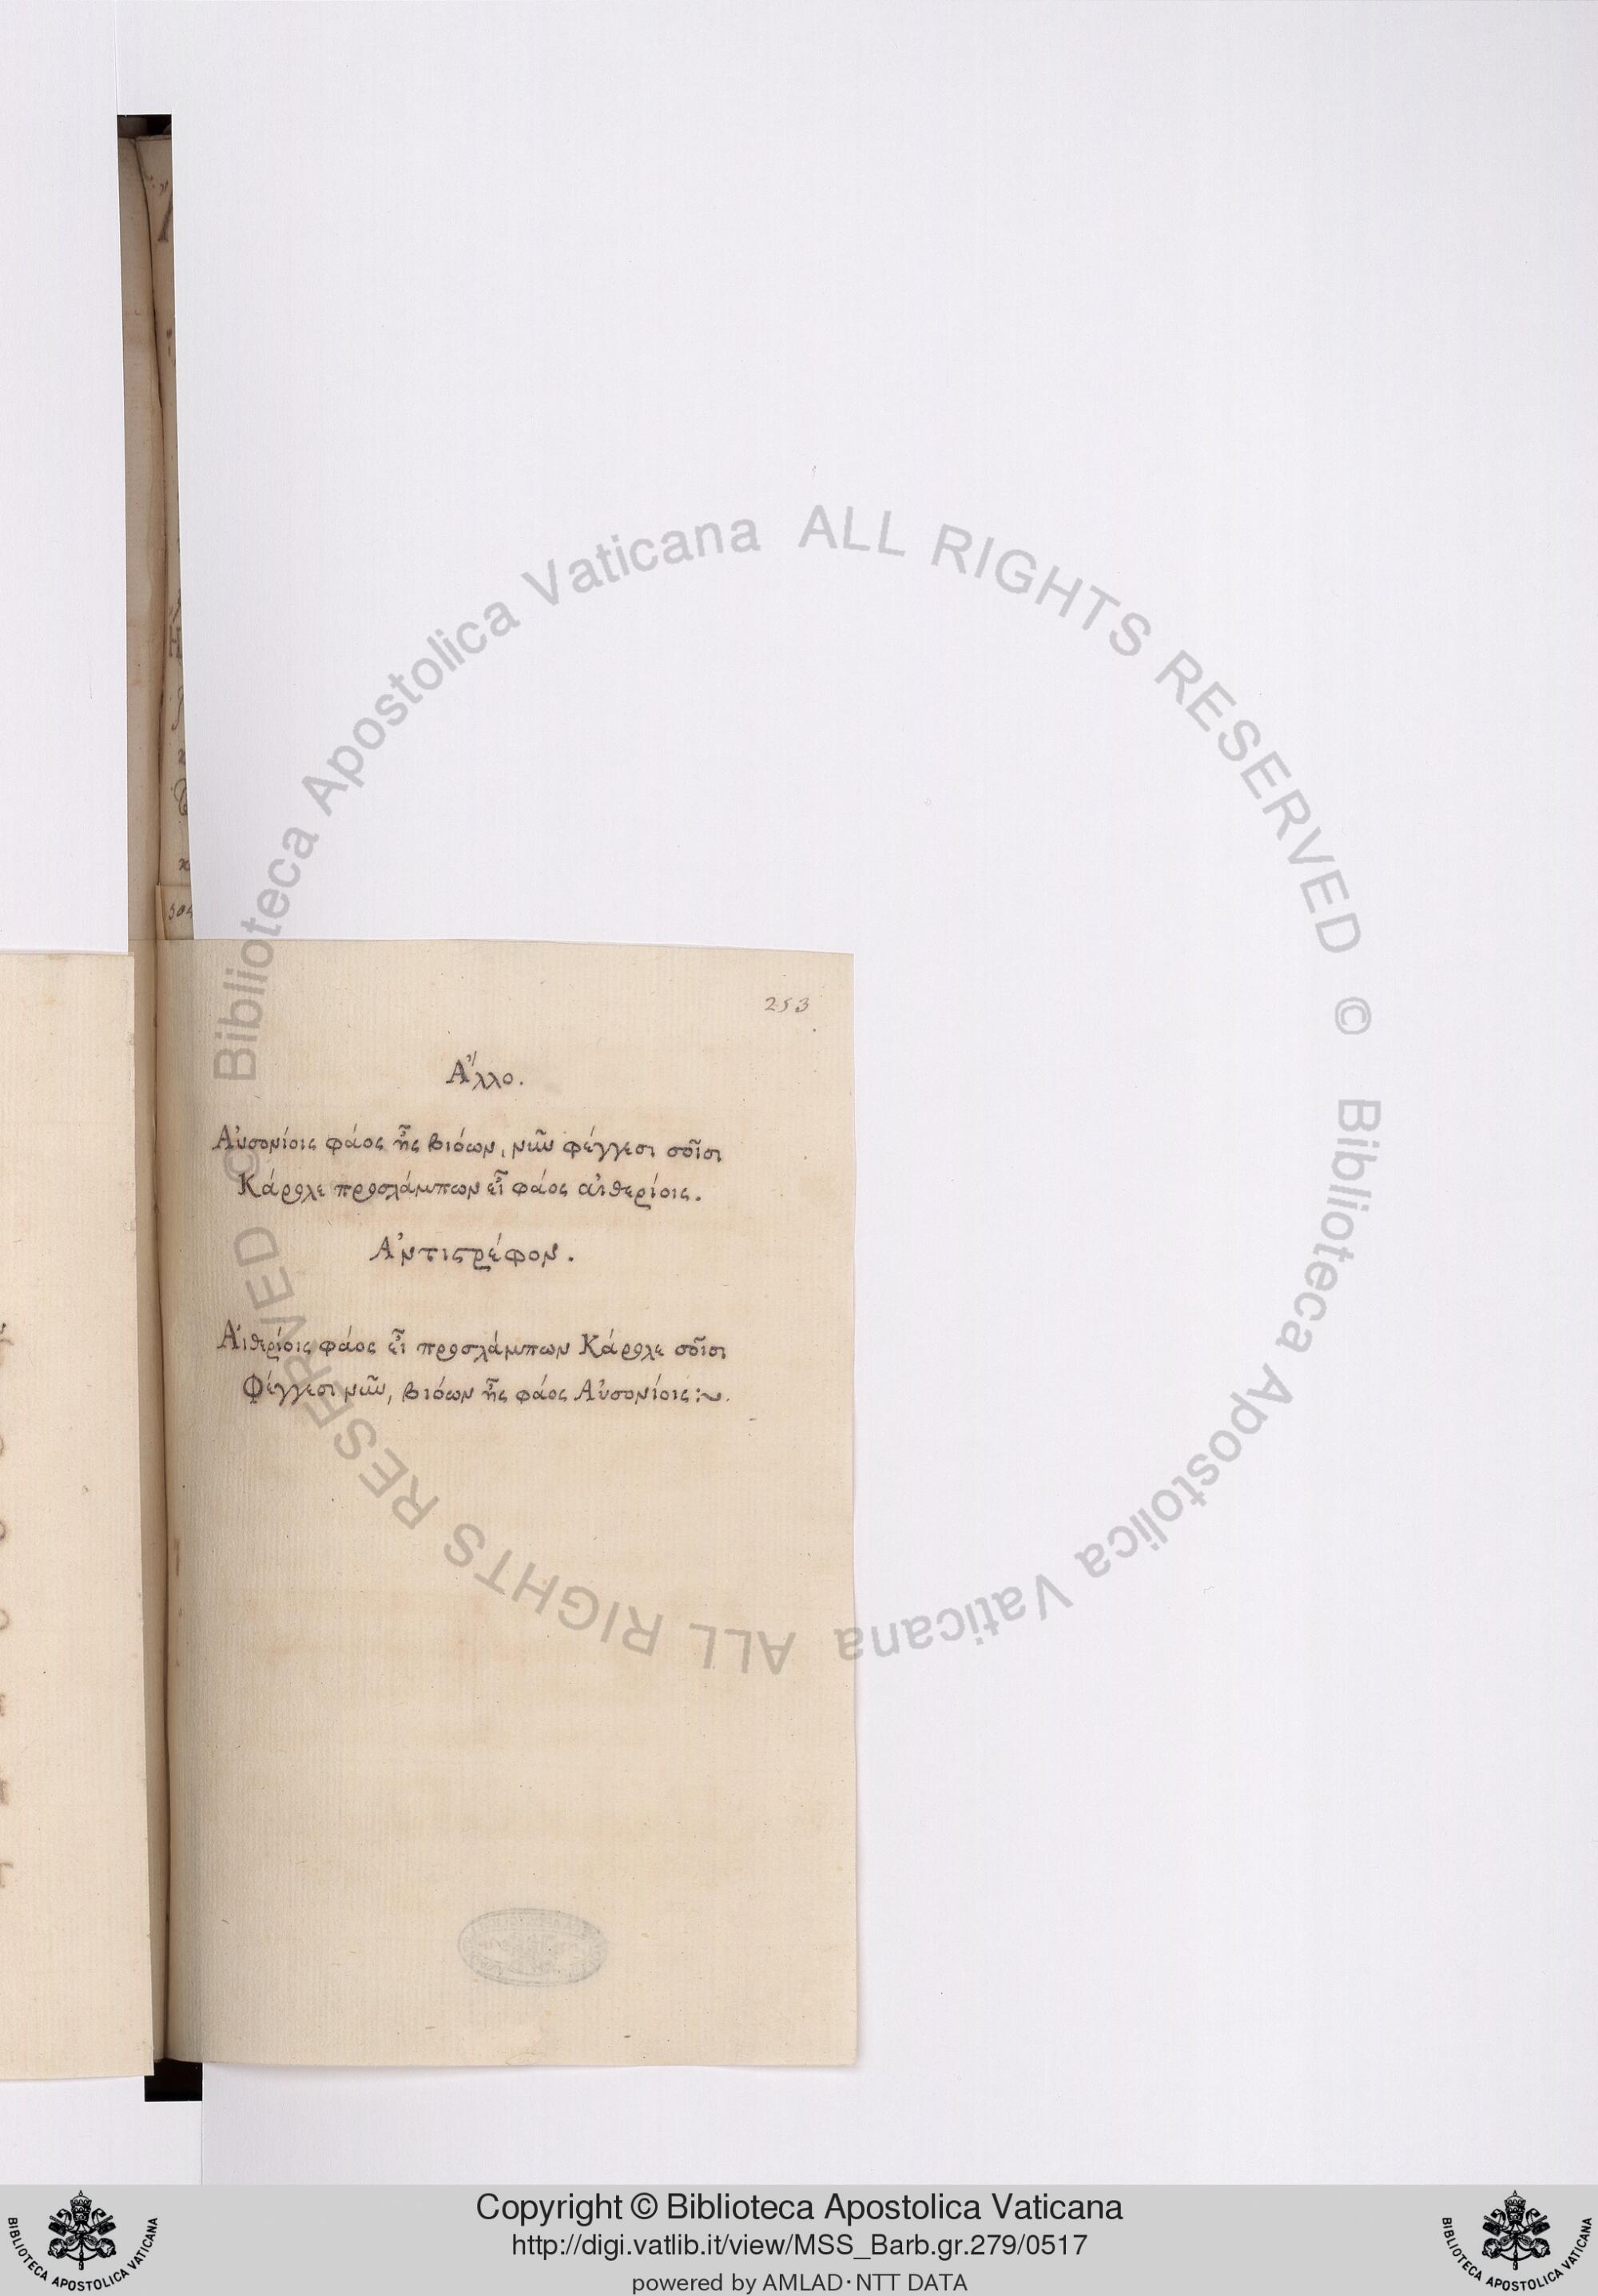 253
Ἄλλο.
Αὐσονίοις φάος ἦς βιόων, νῦν φέγγεσι σοῖσι
Κάρολε προσλάμπων εἶ φάος αἰθερίοις.
Ἀντιστρέφον.
Αἰθερίοις φάος εἶ προσλάμπων Κάρολε σοῖσι
Φέγγεσι νῦν, βιόων ἦς φάος Αὐσονίοις:~.
© Biblioteca Apostolica Vaticana ALL RIGHTS RESERVED © Biblioteca Apostolica Vaticana ALL RIGHTS RESERVED
Copyright © Biblioteca Apostolica Vaticana
http://digi.vatlib.it/view/MSS_Barb.gr.279/0517
powered by AMLAD·NTT DATA
BIBLIOTECA APOSTOLICA VATICANA
BIBLIOTECA APOSTOLICA VATICANA